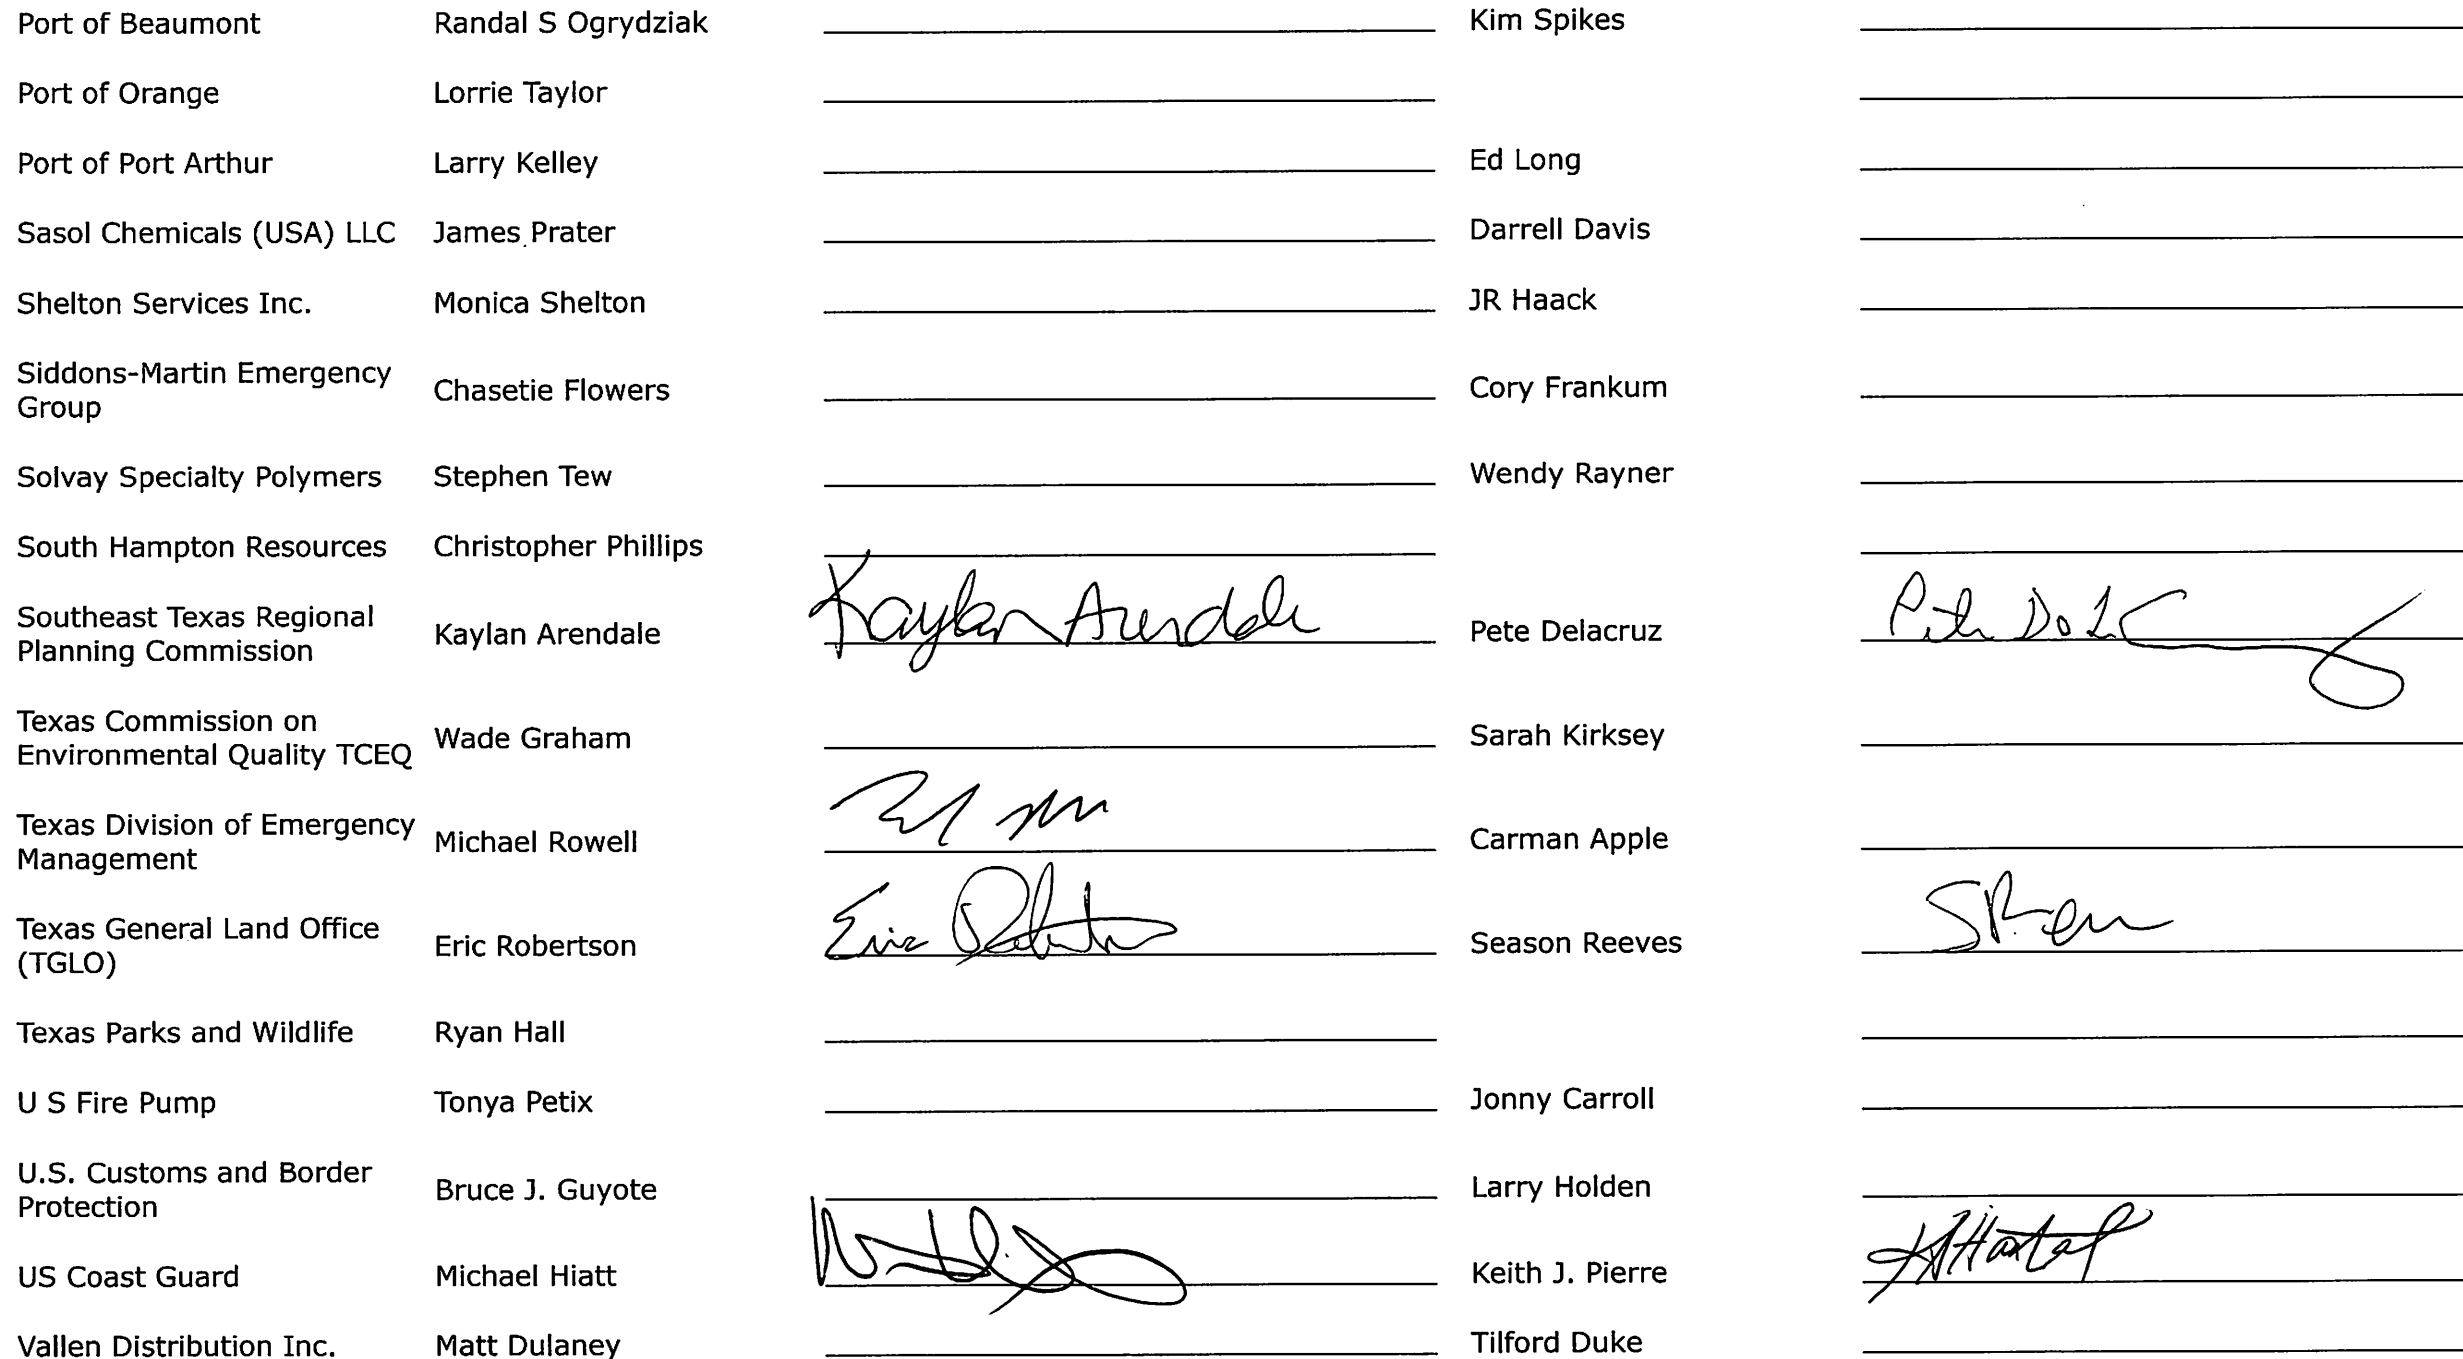 Port of Beaumont Randal S Ogrydziak Kim Spikes
Port of Orange Lorrie Taylor
Port of Port Arthur Larry Kelley Ed Long
Sasol Chemicals (USA) LLC James Prater Darrell Davis
Shelton Services Inc. Monica Shelton JR Haack
Siddons-Martin Emergency
Group Chasetie Flowers Cory Frankum
Solvay Specialty Polymers Stephen Tew Wendy Rayner
South Hampton Resources Christopher Phillips
Southeast Texas Regional
Planning Commission Kaylan Arendale Kaylan Arendale Pete Delacruz
Texas Commission on
Environmental Quality TCEQ Wade Graham Sarah Kirksey
Texas Division of Emergency
Management Michael Rowell Carman Apple
Texas General Land Office
(TGLO) Eric Robertson Eric Robertson Season Reeves
Texas Parks and Wildlife Ryan Hall
U S Fire Pump Tonya Petix Jonny Carroll
U.S. Customs and Border
Protection Bruce J. Guyote Larry Holden
US Coast Guard Michael Hiatt Keith J. Pierre
Vallen Distribution Inc. Matt Dulaney Tilford Duke